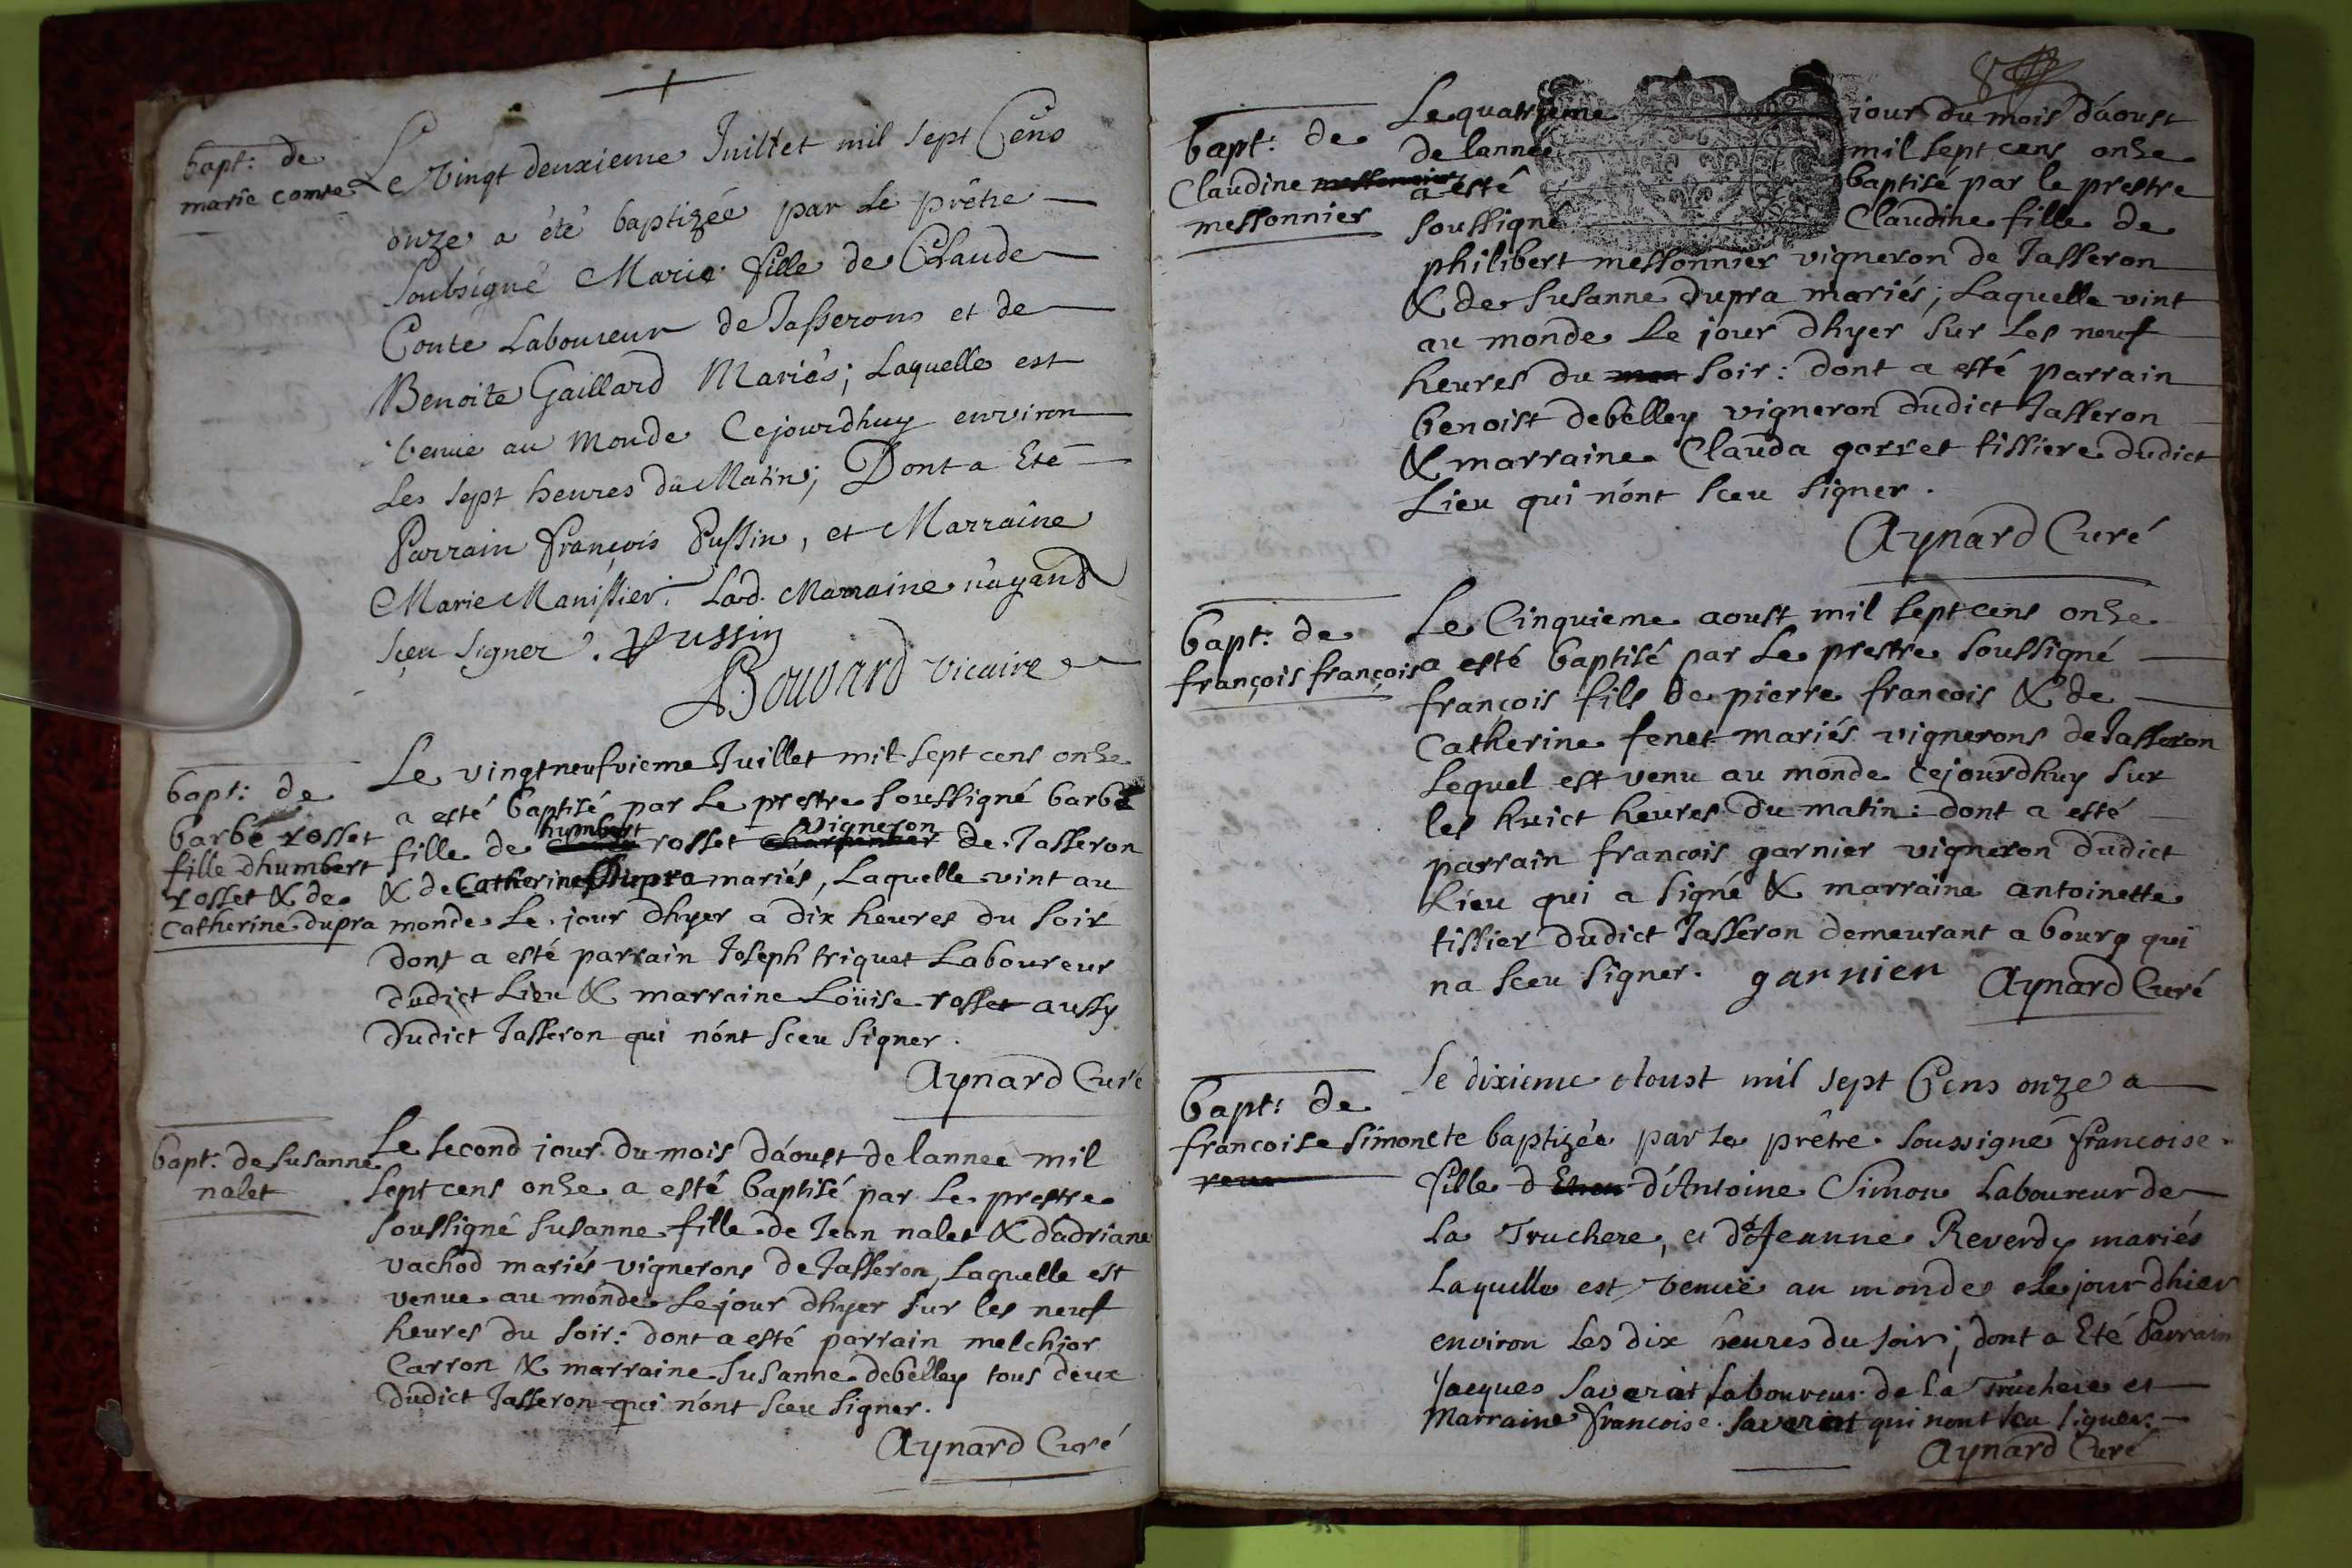 bapt: de
marie conte
Le vingt deuxieme Juillet mil sept Cens
onze a été baptizée par le prêtre
soubsigné Marie fille de Claude
Conte Laboureur de Jasserons et de
Benoite Gaillard Mariés; Laquelle est
venue au Monde Cejourdhuy environ
Les sept heures du Matin; Dont a Eté
Parrain françois Pussin, et Marraine
Marie Manissier. Lad. Marraine n'ayant
sçeu signer. Pussin
Bouvard vicaire
bapt: de
barbe rosset
fille dhumbert
rosset & de
catherine dupra
Le vingtneufvieme Juillet mil sept cens onze
a esté baptisé par le prestre soussigné barbe
fille de humbert rosset vigneron de Jasseron
& de Catherine Dupra mariés, Laquelle vint au
monde le jour dhyer a dix heures du soir
dont a esté parrain Joseph triquet Laboureur
dudict Lieu & marraine Loüise rosset aussy
dudict Jasseron qui n'ónt sceu signer.
Aynard Curé
bapt: de susanne
nalet
Le second jour du mois d'áoust de lannee mil
sept cens onze a esté baptisé par le prestre
soussigné susanne fille de Jean nalet & dadriane
vachod mariés vignerons de Jasseron, Laquelle est
venue au monde le jour dhyer sur les neuf
heures du soir: dont a esté parrain melchior
Carron & marraine susanne debelley tous deux
dudict Jasseron qui n'ónt sceu signer.
Aynard Curé
8
bapt: de
Claudine messonnier
messonnier
Le quatrieme jour du mois d'áoust
de lannée mil sept cens onze
a esté baptisé par le prestre
soussigné Claudine fille de
philibert messonnier vigneron de Jasseron
& de susanne dupra mariés; Laquelle vint
au monde le jour dhyer sur les neuf
heures du soir: dont a esté parrain
benoist debelley vigneron dudict Jasseron
& marraine Clauda gorret tissiere dudict
Lieu qui n'ónt sceu signer.
Aynard Curé
bapt: de
françois françois
Le Cinquieme aoust mil sept cens onze
a esté baptisé par le prestre soussigné
françois fils de pierre francois & de
Catherine fenet mariés vignerons de Jasseron
Lequel est venu au monde cejourdhuy sur
les huict heures du matin: dont a esté
parrain francois garnier vigneron dudict
Lieu qui a signé & marraine antoinette
tissier dudict Jasseron demeurant a bourg qui
na sceu signer. garnier Aynard Curé
bapt: de
francoise simon
Le dixieme Aoust mil sept Cens onze a
ete baptizée par le prêtre soussigné francoise
fille d d'Antoine Simon Laboureur de
La Truchere, et de Jeanne Reverdy mariés
Laquelle est venuë au monde le jour dhier
environ Les dix heures du soir; dont a Eté Parrain
Jacques Saverat Laboureur de la Truchere et
Marraine francoise Saverat qui n'ont sçu signer.
Aynard Curé